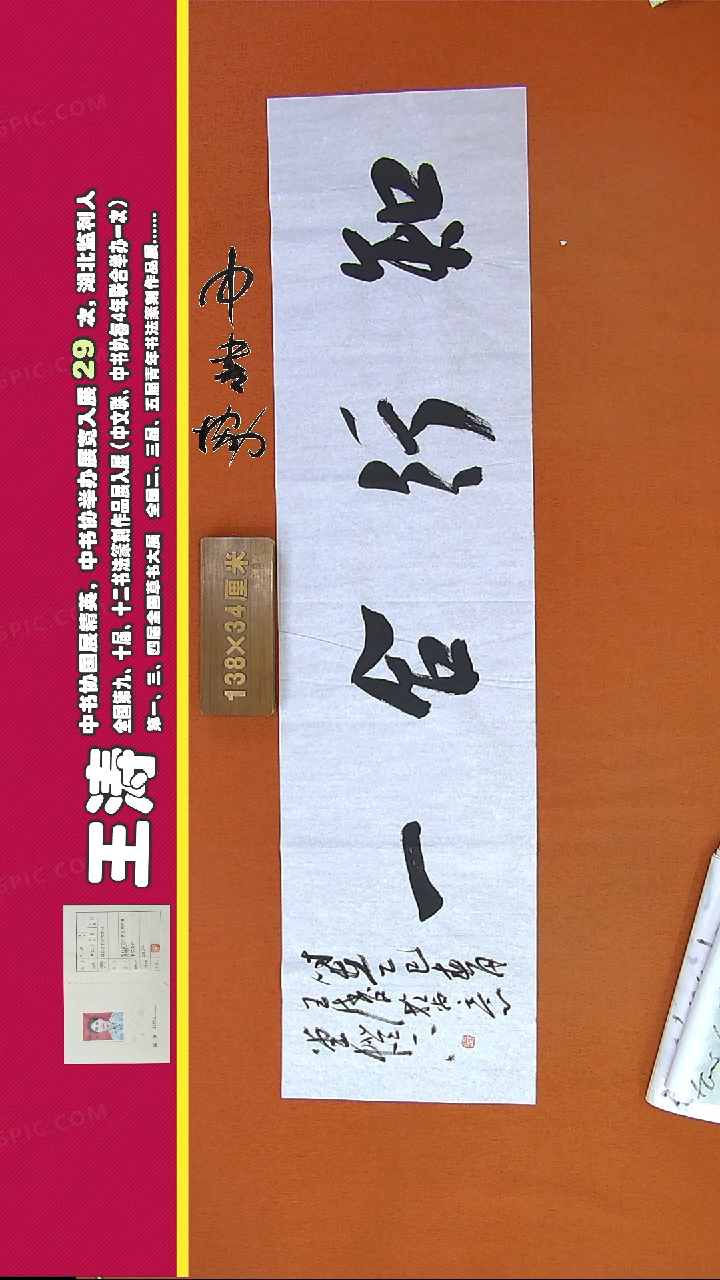 王涛
中书协国展精英，中书协举办展览入展29次，湖北监利人
全国第九、十届、十二书法篆刻作品展入展（中文联、中书协每4年联合举办一次）
第一、三、四届全国草书大展 全国二、三届、五届青年书法篆刻作品展……
中书协
138×34厘米
知行合一
乙巳春月